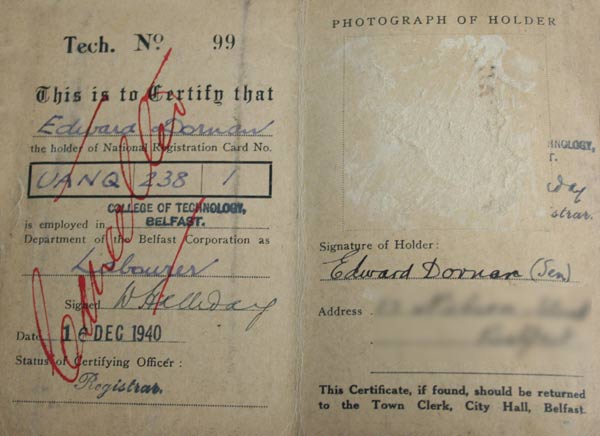 Tech. No 99
This is to Certify that
Edward Dornan
the holder of National Registration Card No.
UANQ 238 1
COLLEGE OF TECHNOLOGY,
BELFAST.
is employed in
Department of the Belfast Corporation as
Labourer
Signed W Halliday
Date 16 DEC 1940
Status of Certifying Officer :
Registrar.
Cancelled
PHOTOGRAPH OF HOLDER
HNOLOGY,
T.
day
istrar.
Signature of Holder :
Edward Dornan (Sen)
Address
This Certificate, if found, should be returned
to the Town Clerk, City Hall, Belfast.